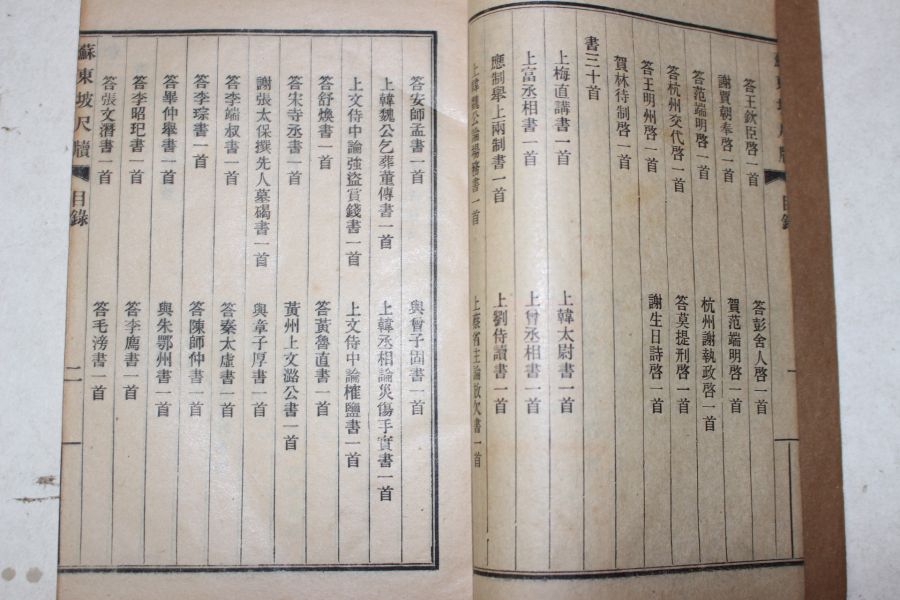 蘇東坡尺牘 目錄 一
答王欽臣啓一首 答彭舍人啓一首
謝賈朝奉啓一首 賀范端明啓一首
答范端明啓一首 杭州謝執政啓一首
答杭州交代啓一首 答莫提刑啓一首
答王明州啓一首 謝生日詩啓一首
賀林待制啓一首
書三十首
上梅直講書一首 上韓太尉書一首
上富丞相書一首 上曾丞相書一首
應制舉上兩制書一首 上劉侍讀書一首
上韓魏公論場務書一首 上蔡省主論放欠書一首
答安師孟書一首 與曾子固書一首
上韓魏公乞葬董傳書一首 上韓丞相論災傷手實書一首
上文侍中論強盜賞錢書一首 上文侍中論榷鹽書一首
答舒煥書一首 答黃魯直書一首
答宋寺丞書一首 黃州上文潞公書一首
謝張太保撰先人墓碣書一首 與章子厚書一首
答李端叔書一首 答秦太虛書一首
答李琮書一首 答陳師仲書一首
答畢仲舉書一首 與朱鄂州書一首
答李昭玘書一首 答李廌書一首
答張文潛書一首 答毛滂書一首
蘇東坡尺牘 目錄 二